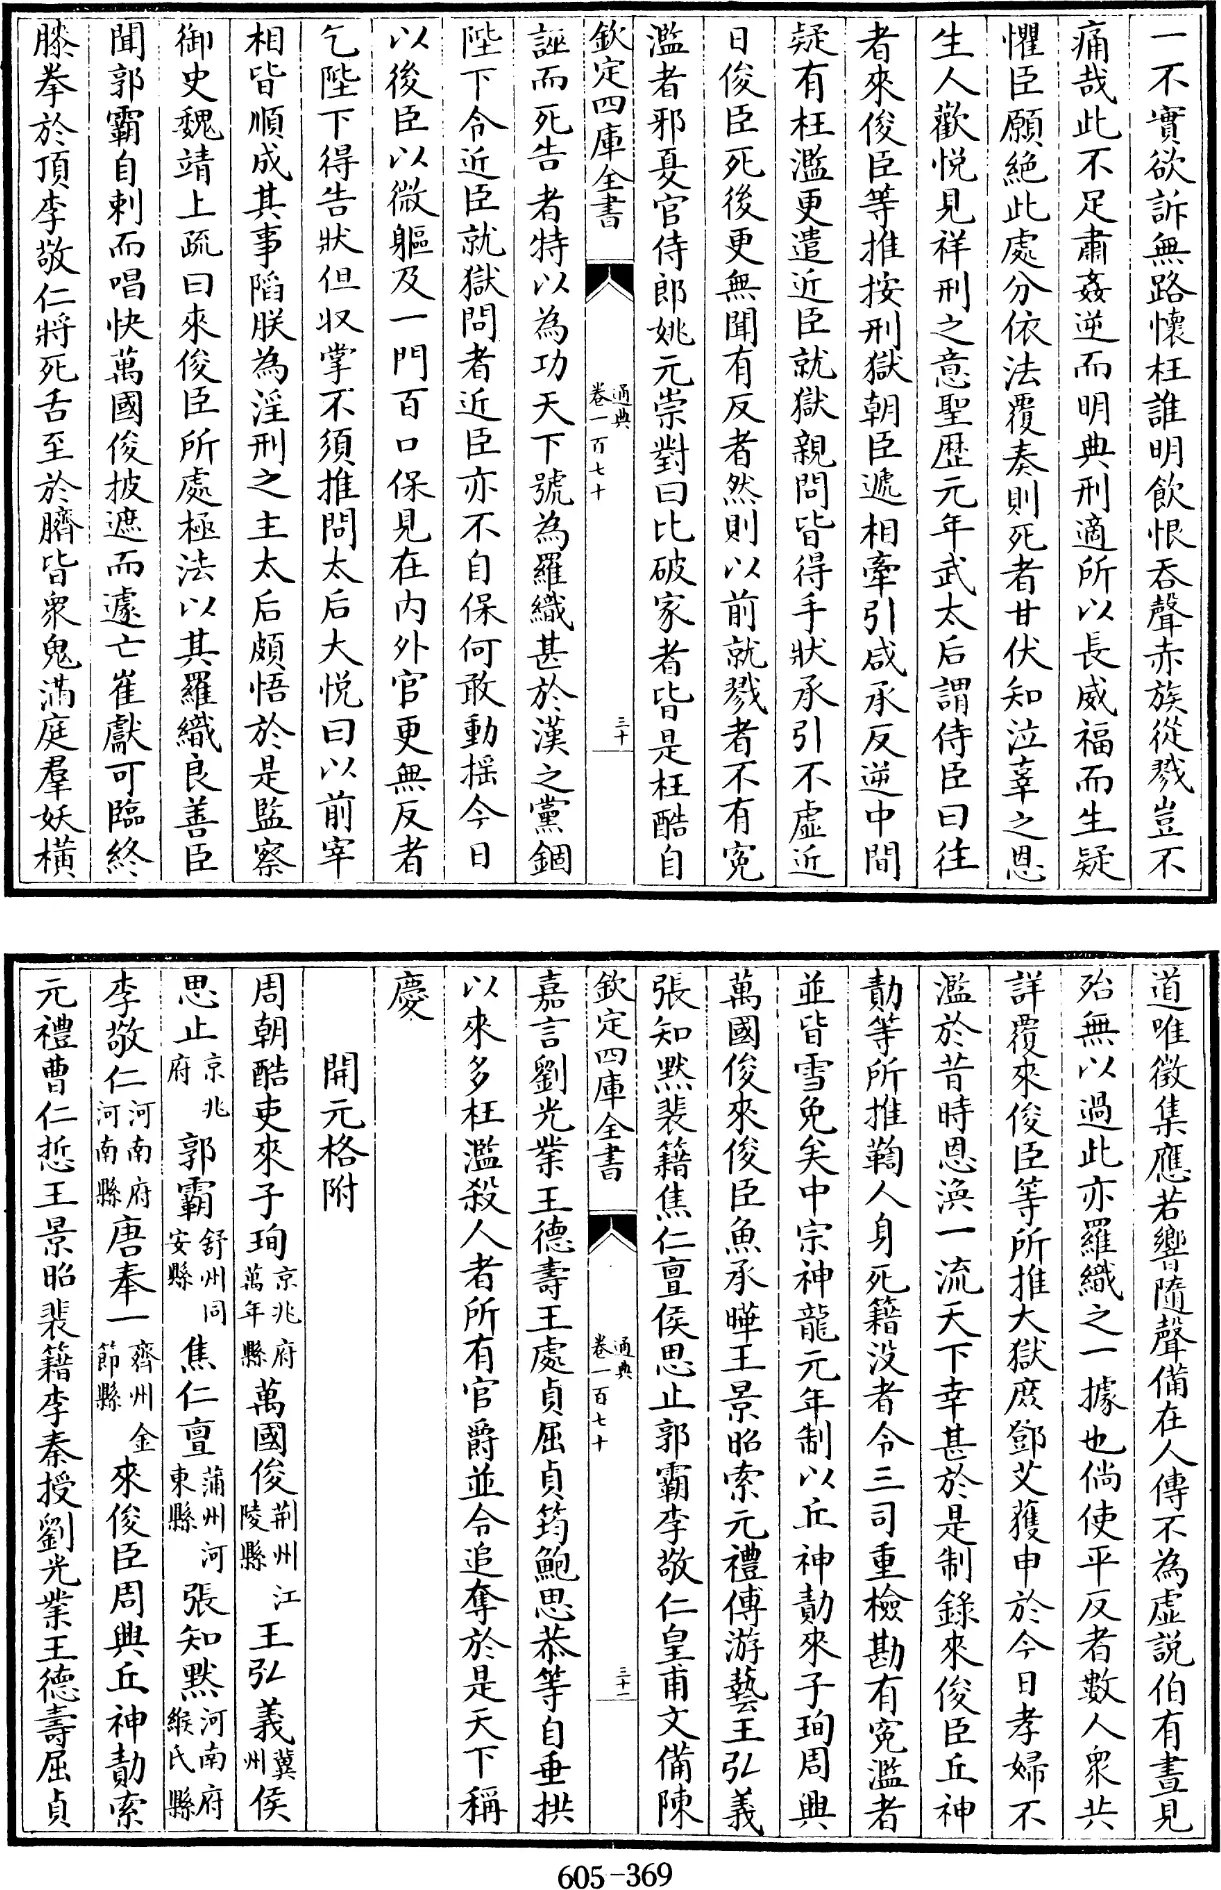 一不實欲訴無路懷枉誰明飲恨吞聲赤族從戮豈不
痛哉此不足肅姦逆而明典刑適所以長威福而生疑
懼臣願絶此處分依法覆奏則死者甘伏知泣辜之恩
生人歡悦見祥刑之意聖歴元年武太后謂侍臣曰往
者來俊臣等推按刑獄朝臣遞相牽引咸承反逆中間
疑有枉濫更遣近臣就獄親問皆得手狀承引不虛近
日俊臣死後更無聞有反者然則以前就戮者不有寃
濫者邪夏官侍郎姚元崇對曰比破家者皆是枉酷自
欽定四庫全書
通典
卷一百七十
三十
誣而死告者特以為功天下號為羅織甚於漢之黨錮
陛下令近臣就獄問者近臣亦不自保何敢動揺今日
以後臣以微軀及一門百口保見在内外官更無反者
乞陛下得告狀但収掌不須推問太后大悦曰以前宰
相皆順成其事陷朕為淫刑之主太后頗悟於是監察
御史魏靖上疏曰來俊臣所處極法以其羅織良善臣
聞郭霸自刺而唱快萬國俊披遮而遽亡崔獻可臨終
膝拳於頂李敬仁將死舌至於臍皆衆鬼滿庭羣妖橫
道唯徵集應若響隨聲備在人傳不為虛説伯有晝見
殆無以過此亦羅織之一據也倘使平反者數人衆共
詳覆來俊臣等所推大獄庶鄧艾獲申於今日孝婦不
濫於昔時恩渙一流天下幸甚於是制錄來俊臣丘神
勣等所推鞫人身死籍没者令三司重檢勘有寃濫者
並皆雪免矣中宗神龍元年制以丘神勣來子珣周興
萬國俊來俊臣魚承曄王景昭索元禮傅游藝王弘義
張知默裴籍焦仁亶侯思止郭霸李敬仁皇甫文備陳
欽定四庫全書
通典
卷一百七十
三十一
嘉言劉光業王德壽王處貞屈貞筠鮑思恭等自垂拱
以來多枉濫殺人者所有官爵並令追奪於是天下稱
慶
開元格附
周朝酷吏來子珣京兆府萬年縣萬國俊荆州江陵縣王弘義冀州侯
思止京兆府郭霸舒州同安縣焦仁亶蒲州河東縣張知默河南府緱氏縣
李敬仁河南府河南縣唐奉一齊州金節縣來俊臣周興丘神勣索
元禮曹仁悊王景昭裴籍李秦授劉光業王德壽屈貞
605-369